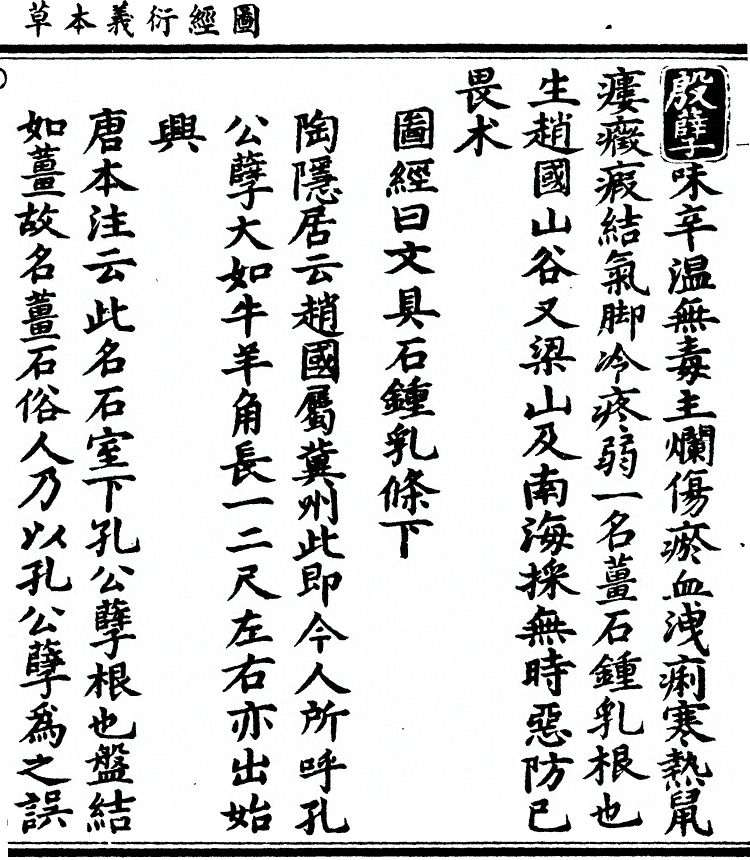 圖經衍義本草
殷孽味辛温無毒主爛傷瘀血洩痢寒熱鼠
瘻癥瘕結氣脚冷疼弱一名薑石鍾乳根也
生趙國山谷又梁山及南海採無時惡防已
畏术
圖經曰文具石鍾乳條下
陶隱居云趙國屬冀州此即今人所呼孔
公孽大如牛羊角長一二尺左右亦出始
興
唐本注云此名石室下孔公孽根也盤結
如薑故名薑石俗人乃以孔公孽爲之誤